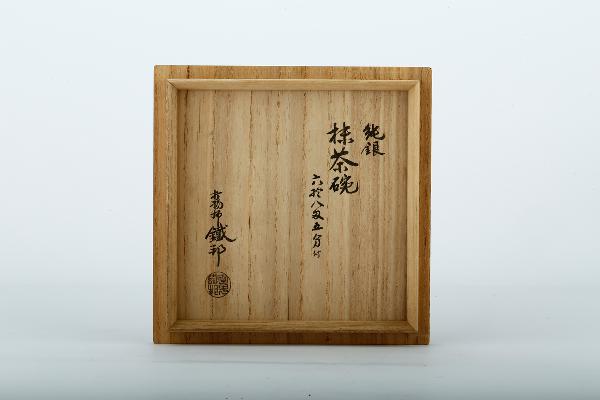 純銀
抹茶碗
六拾八匁五分付
鐵邦